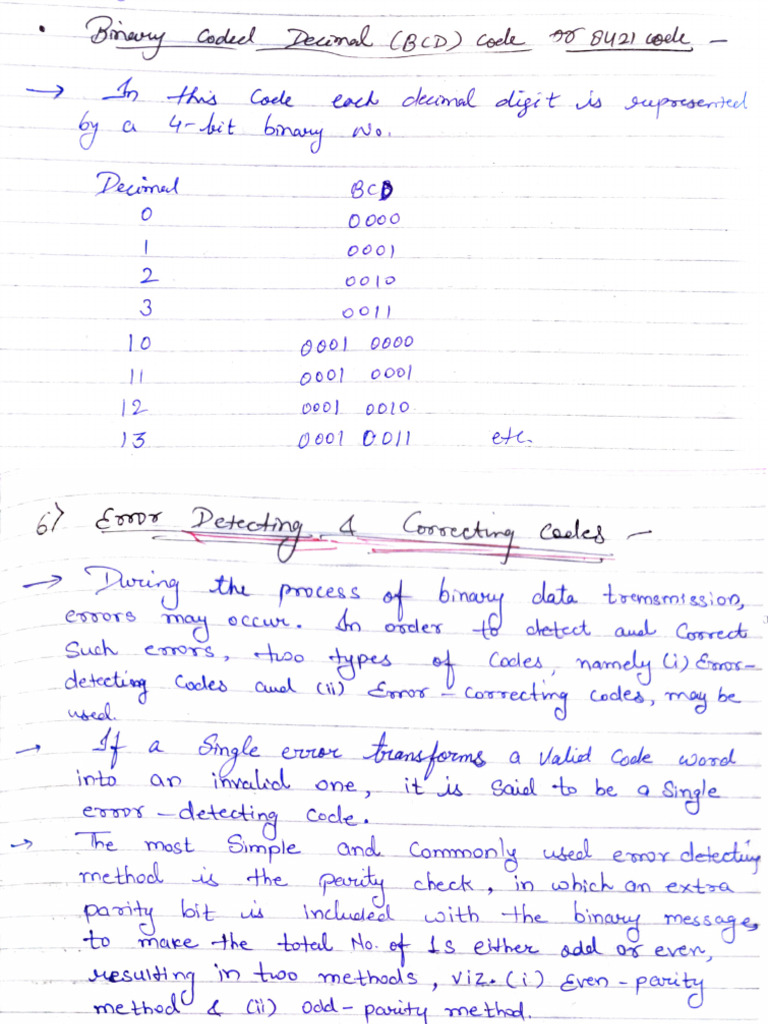 • Binary Coded Decimal (BCD) Code or 8421 code –
→ In this Code each decimal digit is represented
by a 4-bit binary No.
Decimal BCD
0 0000
1 0001
2 0010
3 0011
10 0001 0000
11 0001 0001
12 0001 0010
13 0001 0011 etc.
6) Error Detecting & Correcting Codes –
→ During the process of binary data transmission,
errors may occur. In order to detect and Correct
Such errors, two types of Codes, namely (i) Error-
detecting Codes and (ii) Error-correcting codes, may be
used.
→ If a Single error transforms a valid Code word
into an invalid one, it is said to be a Single
error-detecting Code.
→ The most Simple and Commonly used error detecting
method is the parity check, in which an extra
parity bit is included with the binary message,
to make the total No. of 1s either odd or even,
resulting in two methods, viz. (i) Even-parity
method & (ii) odd-parity method.